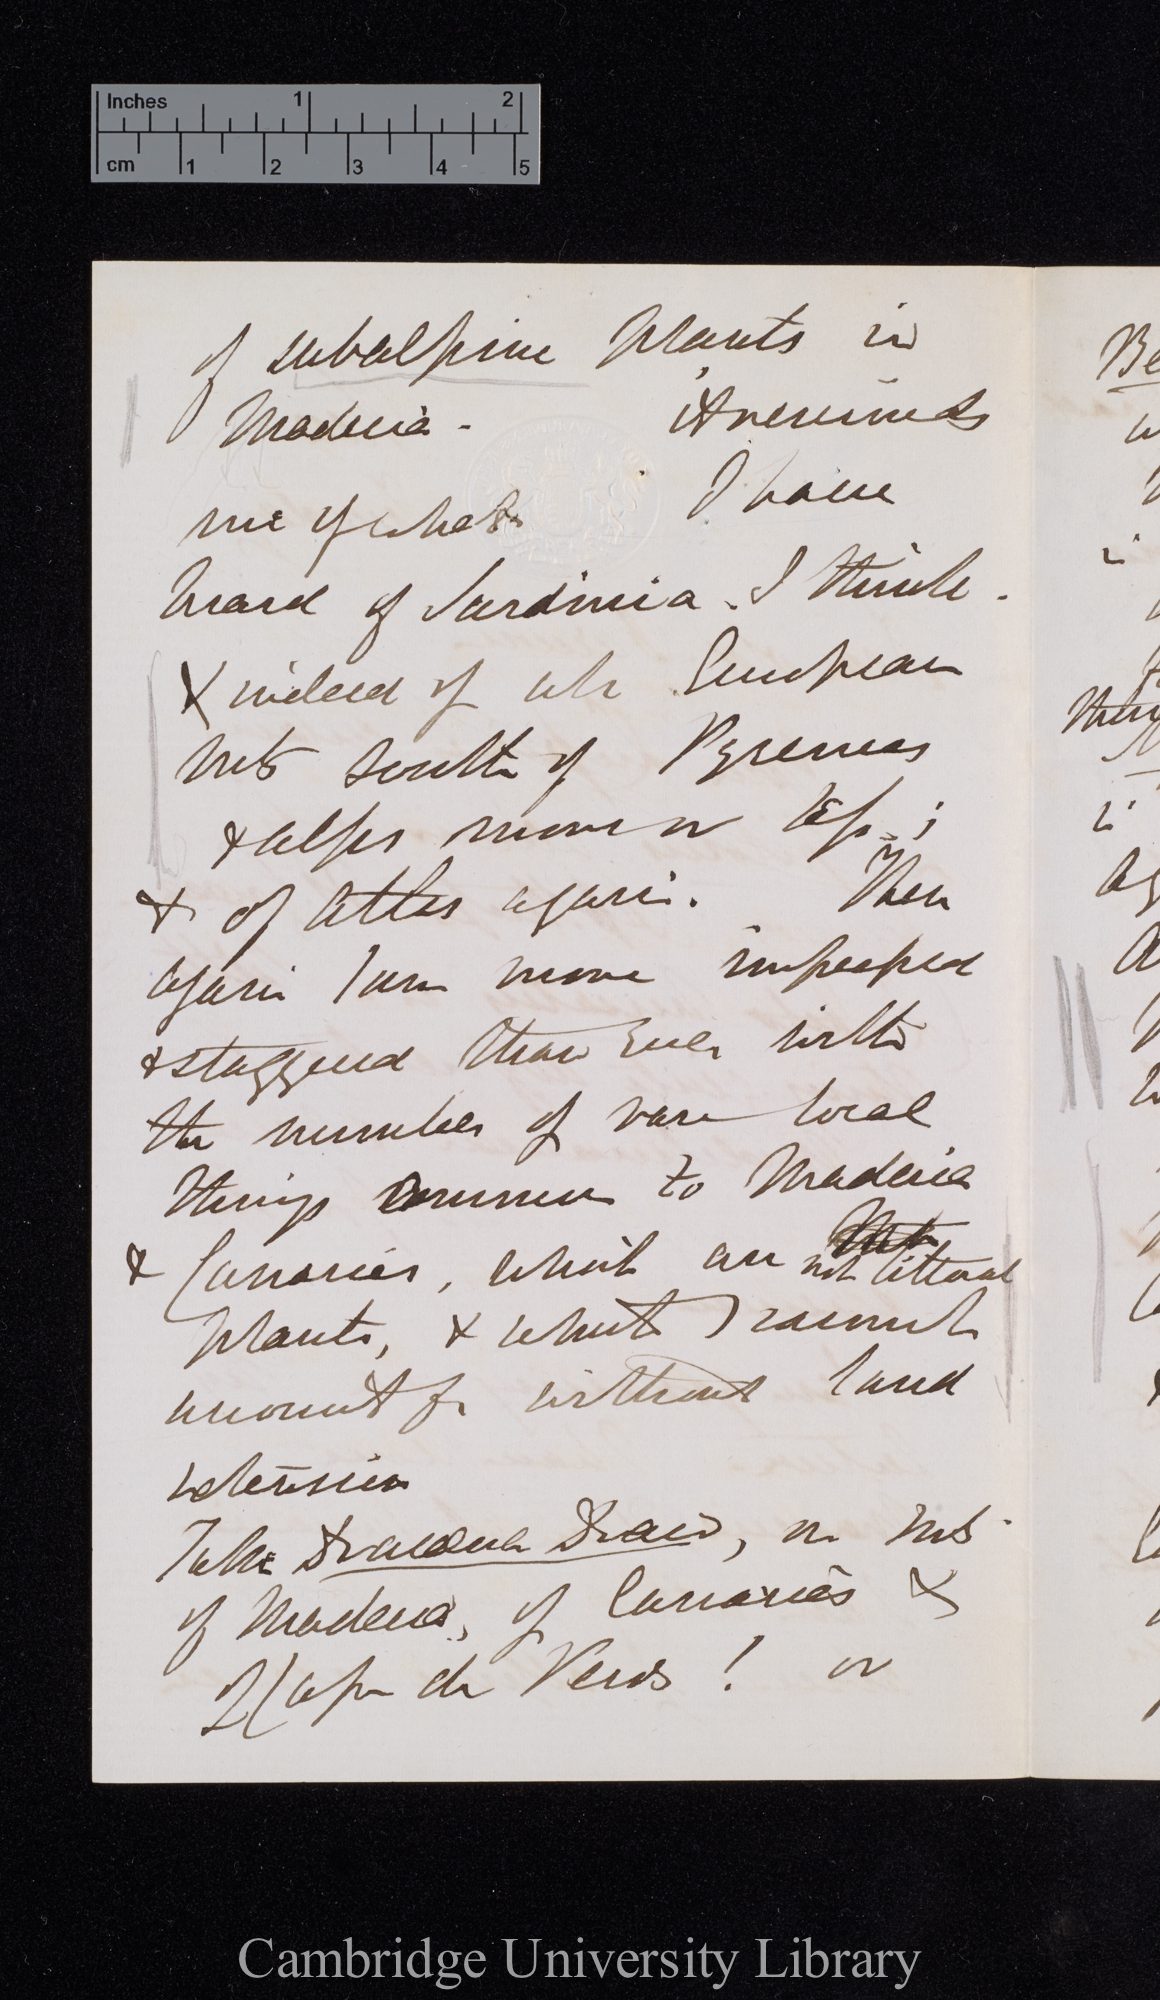 Inches 1 2
cm 1 2 3 4 5
of subalpine plants in
Madeira - it reminds
me of what I have
heard of Sardinia. I think.
& indeed of all European
Mts south of Pyrenees
& alps more or less;
& of Atlas again. Then
again I am more
& staggered than ever with
the number of rare local
things common to Madeira
& Canaries, which are not littoral
plants, & which I cannot
account for without land
extension
Take Dracaena Draco, on Mts
of Madeira, of Canaries &
of Cape de Verds! or
Be
Cambridge University Library